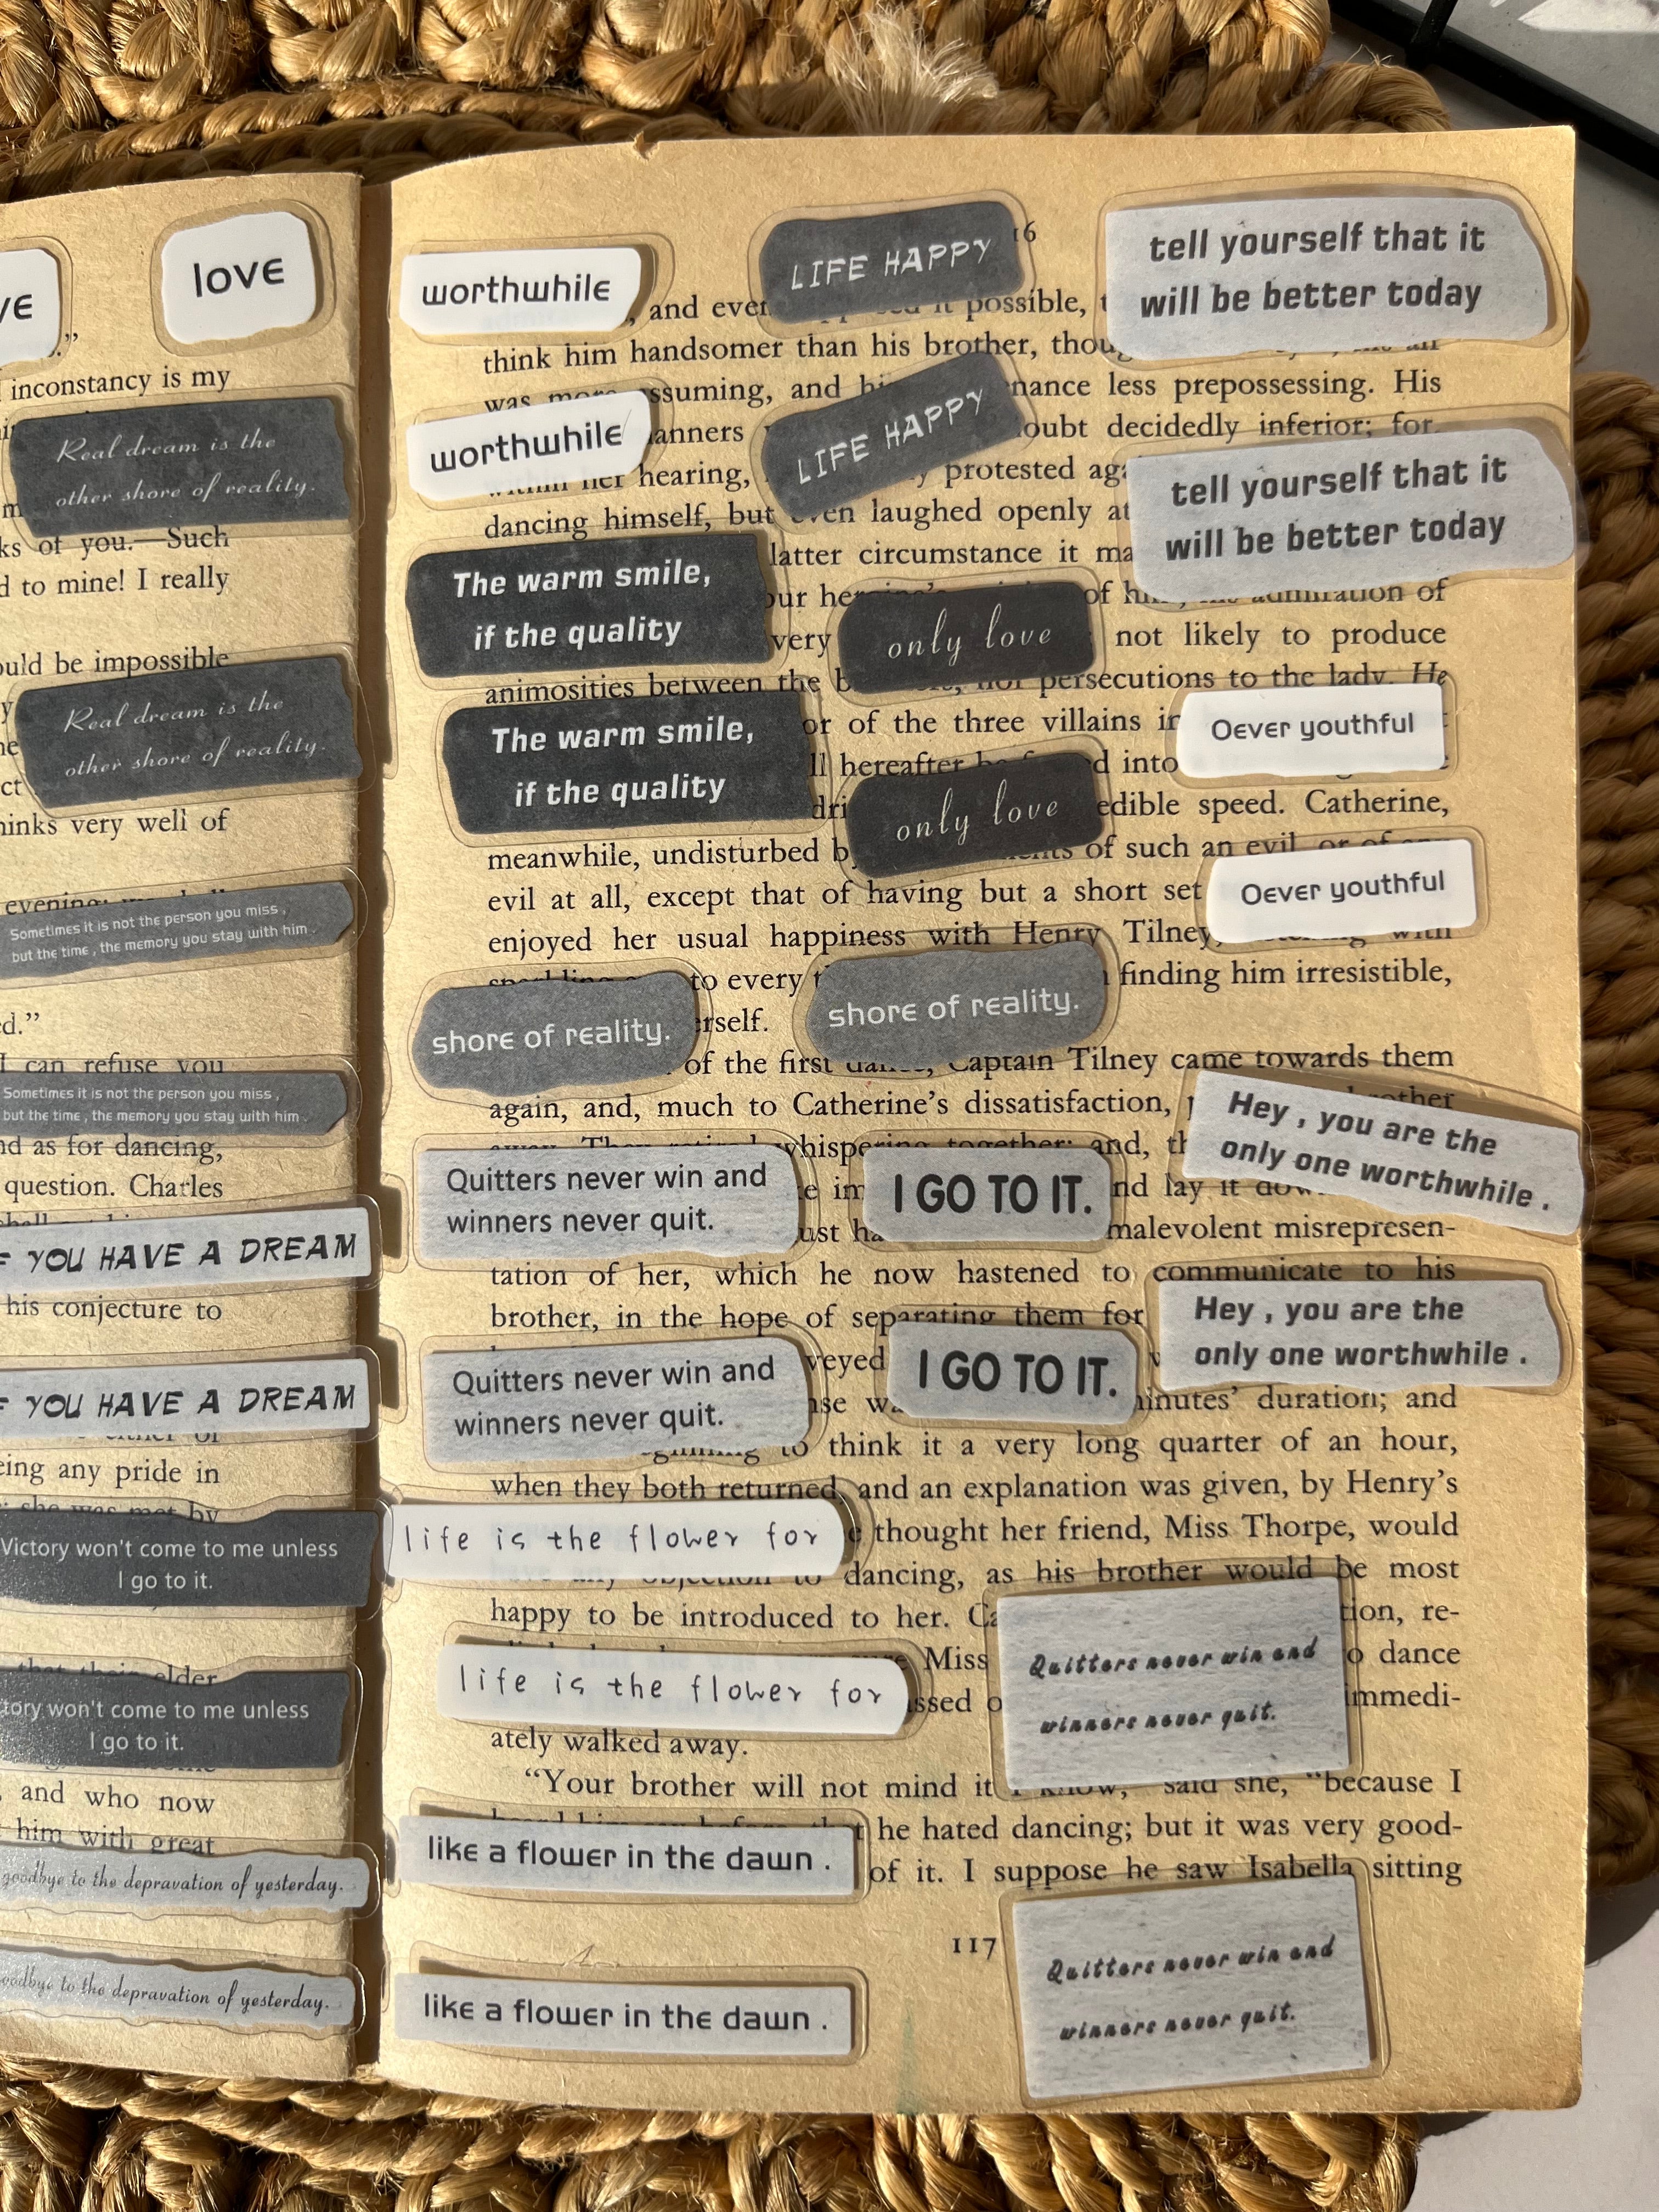 love
inconstancy is my
Real dream is the
other shore of reality.
of you.—Such
to mine! I really
be impossible
Real dream is the
other shore of reality.
very well of
evening;
Sometimes it is not the person you miss ,
but the time , the memory you stay with him .
can refuse you
Sometimes it is not the person you miss ,
but the time , the memory you stay with him .
as for dancing,
question. Charles
YOU HAVE A DREAM
his conjecture to
YOU HAVE A DREAM
any pride in
she was met by
Victory won't come to me unless
I go to it.
that their elder
won't come to me unless
I go to it.
and who now
him with great
goodbye to the depravation of yesterday.
to the depravation of yesterday.
worthwhile
LIFE HAPPY
tell yourself that it
will be better today
and possible,
think him handsomer than his brother,
was more and less prepossessing. His
worthwhile
LIFE HAPPY
decidedly inferior; for
tell yourself that it
will be better today
within her hearing, protested
dancing himself, but even laughed openly at
The warm smile,
if the quality
latter circumstance it
of admiration of
only love
very not likely to produce
animosities between the persecutions to the lady. He
The warm smile,
if the quality
Oever youthful
of the three villains
hereafter into
only love
speed. Catherine,
meanwhile, undisturbed of such an evil, or of
Oever youthful
evil at all, except that of having but a short set
enjoyed her usual happiness with Henry Tilney, with
to every finding him irresistible,
shore of reality.
shore of reality.
of the first Captain Tilney came towards them
again, and, much to Catherine's dissatisfaction,
Hey , you are the
only one worthwhile .
away. They retired whispering together; and,
Quitters never win and
winners never quit.
I GO TO IT.
lay it
malevolent misrepresen-
tation of her, which he now hastened to communicate to his
brother, in the hope of separating them for
Hey , you are the
only one worthwhile .
Quitters never win and
winners never quit.
I GO TO IT.
minutes' duration; and
to think it a very long quarter of an hour,
when they both returned, and an explanation was given, by Henry's
life is the flower for
thought her friend, Miss Thorpe, would
any objection to dancing, as his brother would be most
happy to be introduced to her. re-
Quitters never win and
winners never quit.
Miss dance
life is the flower for
immedi-
ately walked away.
“Your brother will not mind it I know,” said she, “because I
like a flower in the dawn .
he hated dancing; but it was very good-
of it. I suppose he saw Isabella sitting
117
Quitters never win and
winners never quit.
like a flower in the dawn .